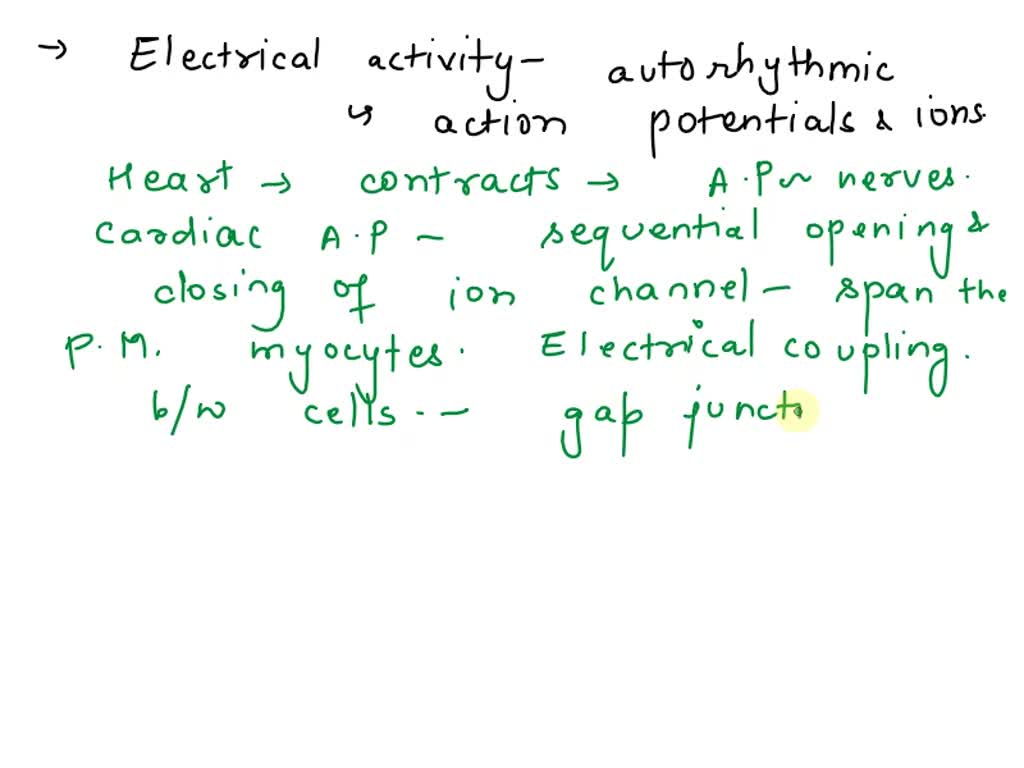 → Electrical activity- autorhythmic
↳ action potentials & ions.
Heart → contracts → A.P ~ nerves.
cardiac A.P - sequential opening &
closing of ion channel - span the
P.M. myocytes. Electrical coupling.
b/w cells.- gap juncti